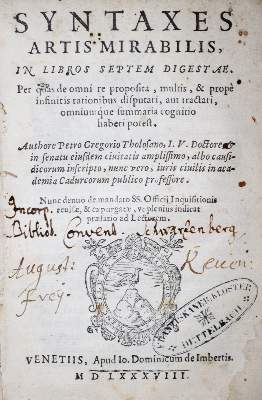 SYNTAXES
ARTIS MIRABILIS,
IN LIBROS SEPTEM DIGESTAE.
Per quas de omni re proposita, multis, & propè
infinitis rationibus disputari, aut tractari,
omniumque summaria cognitio
haberi potest.
Authore Petro Gregorio Tholosano, I. V. Doctore
in senatu eiusdem ciuitatis amplissimo, albo causi-
dicorum inscripto, nunc verò, iuris ciuilis in aca-
demia Cadurcorum publico professore.
Nunc denuo de mandato SS. Officij Inquisitionis
reuisae, & expurgatae, vt plenius indicat
praefatio ad Lectorem.
Incorp.
Biblioth. Convent. Schwarzenberg
Augusti
Frey.
VENETIIS, Apud Io. Dominicum de Imbertis.
M D LXXXVIII.
FRANZISKANER-KLOSTER
DETTELBACH